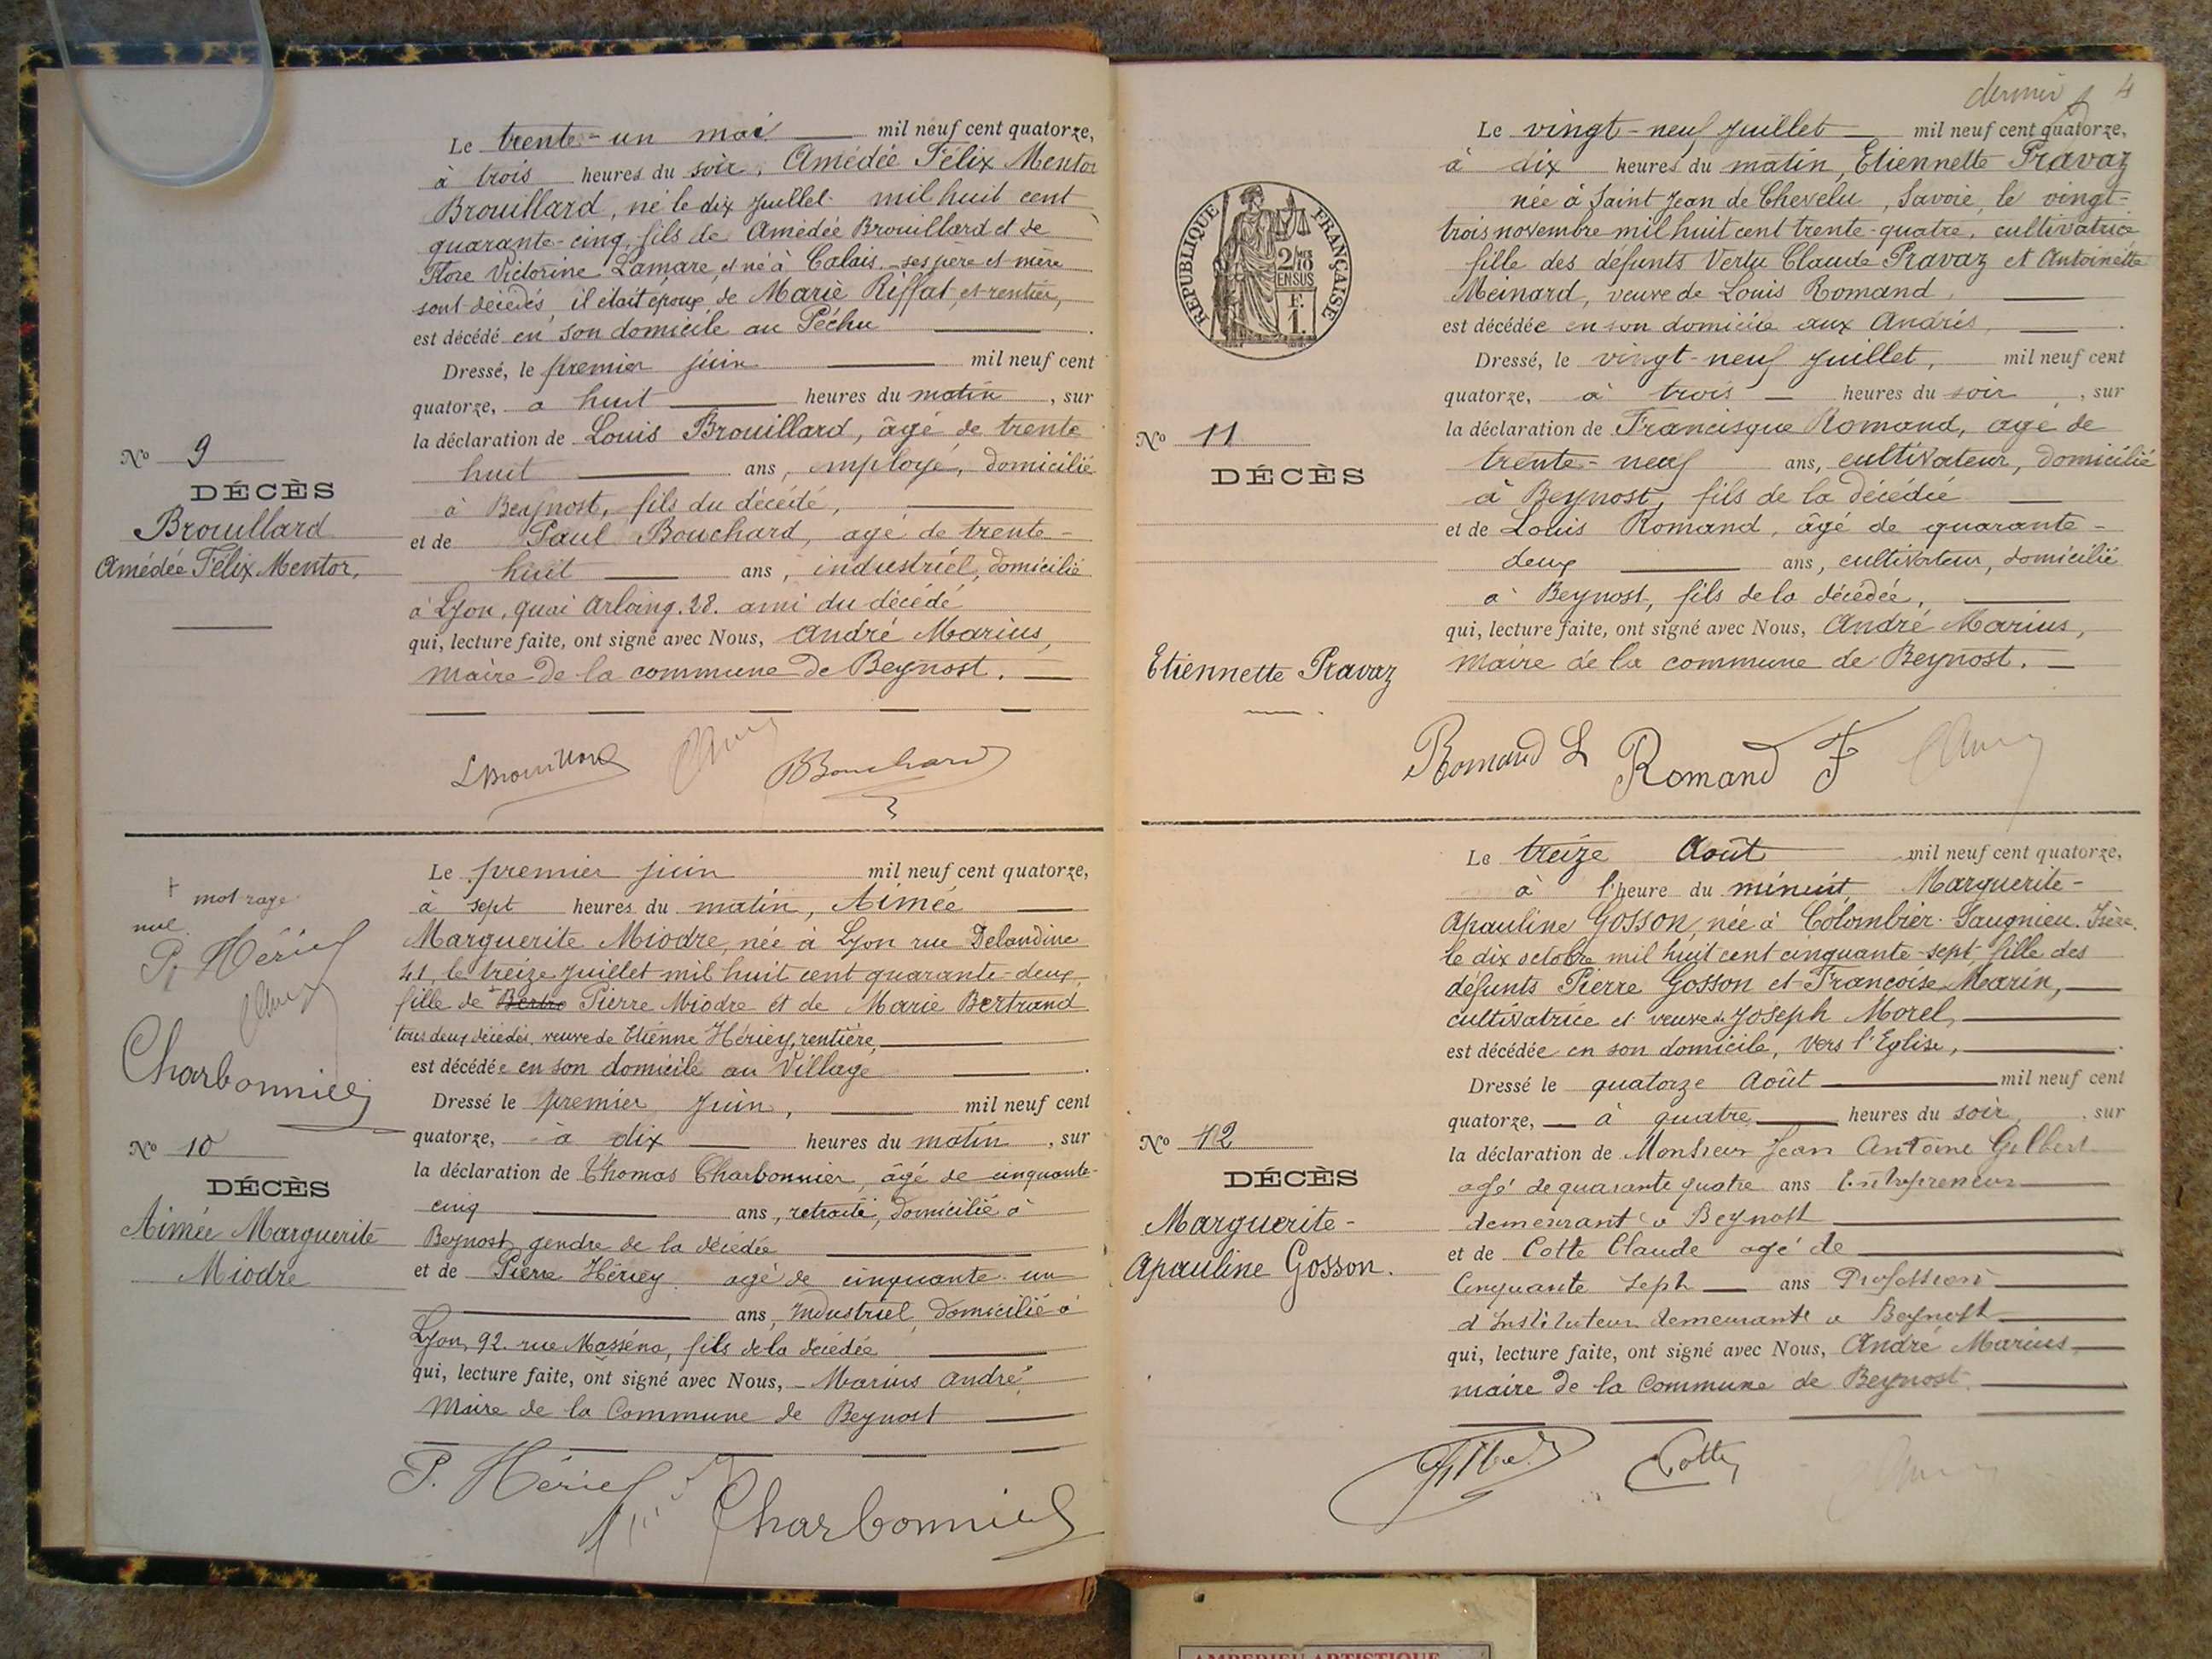 Le trente-un mai mil neuf cent quatorze,
à trois heures du soir, Amédée Félix Mentor
Brouillard, né le dix juillet mil huit cent
quarante-cinq, fils de Amédée Brouillard et de
Flore Victorine Lamare, et né à Calais, ses père et mère
sont décédés, il était époux de Marie Riffat, et rentier,
est décédé en son domicile au Péchu
Dressé, le premier juin mil neuf cent
quatorze, à huit heures du matin, sur
la déclaration de Louis Brouillard, âgé de trente
huit ans, employé, domicilié
à Beynost, fils du décédé,
et de Paul Bouchard, agé de trente-
huit ans, industriel, domicilié
à Lyon, quai Arloing. 28. ami du décédé
qui, lecture faite, ont signé avec Nous, André Marius,
maire de la commune de Beynost.
N° 9
DÉCÈS
Brouillard
Amédée Félix Mentor,
LBrouillard
PBouchard
+ mot rayé
nul.
P. Hériey
Charbonnier
N° 10
DÉCÈS
Aimée Marguerite
Miodre
Le premier juin mil neuf cent quatorze,
à sept heures du matin, Aimée
Marguerite Miodre, née à Lyon rue Delandine
41, le treize juillet mil huit cent quarante-deux,
fille de + Bertra Pierre Miodre et de Marie Bertrand
tous deux décédés, veuve de Etienne Hériey, rentière,
est décédée en son domicile au Village
Dressé le premier juin, mil neuf cent
quatorze, à dix heures du matin, sur
la déclaration de Thomas Charbonnier, âgé de cinquante-
cinq ans, retraité, domicilié à
Beynost, gendre de la décédée
et de Pierre Hériey agé de cinquante un
ans, industriel, domicilié à
Lyon, 92. rue Masséna, fils de la décédée
qui, lecture faite, ont signé avec Nous, Marius André
Maire de la Commune de Beynost
P. Hériey
Charbonnier
4
REPUBLIQUE FRANÇAISE
2/10
EN SUS
F.
1.
Le vingt-neuf juillet mil neuf cent quatorze,
à dix heures du matin, Etiennette Pravaz
née à Saint Jean de Chevelu, Savoie, le vingt-
trois novembre mil huit cent trente-quatre, cultivatrice
fille des défunts Vertu Claude Pravaz et Antoinette
Meinard, veuve de Louis Romand,
est décédée en son domicile aux Andrés,
Dressé, le vingt-neuf juillet, mil neuf cent
quatorze, à trois heures du soir, sur
la déclaration de Francisque Romand, agé de
trente-neuf ans, cultivateur, domicilié
à Beynost, fils de la décédée
et de Louis Romand, âgé de quarante-
deux ans, cultivateur, domicilié
à Beynost, fils de la décédée,
qui, lecture faite, ont signé avec Nous, André Marius,
maire de la commune de Beynost.
N° 11
DÉCÈS
Etiennette Pravaz
Romand L Romand F
Le treize Août mil neuf cent quatorze,
à l'heure du minuit, Marguerite-
Apauline Gosson, née à Colombier-Saugnieu. Isère.
le dix octobre mil huit cent cinquante-sept, fille des
défunts Pierre Gosson et Françoise Marin,
cultivatrice et veuve de Joseph Morel,
est décédée en son domicile, Vers l'Eglise,
Dressé le quatorze Août mil neuf cent
quatorze, à quatre heures du soir, sur
la déclaration de Monsieur Jean Antoine Gilbert
agé de quarante quatre ans Entrepreneur
demeurant à Beynost
et de Cotte Claude agé de
Cinquante Sept ans Profession
d'Instituteur demeurant à Beynost
qui, lecture faite, ont signé avec Nous, André Marius
maire de la Commune de Beynost.
N° 12
DÉCÈS
Marguerite-
Apauline Gosson.
Cotte
AMBERIEU ARTISTIQUE